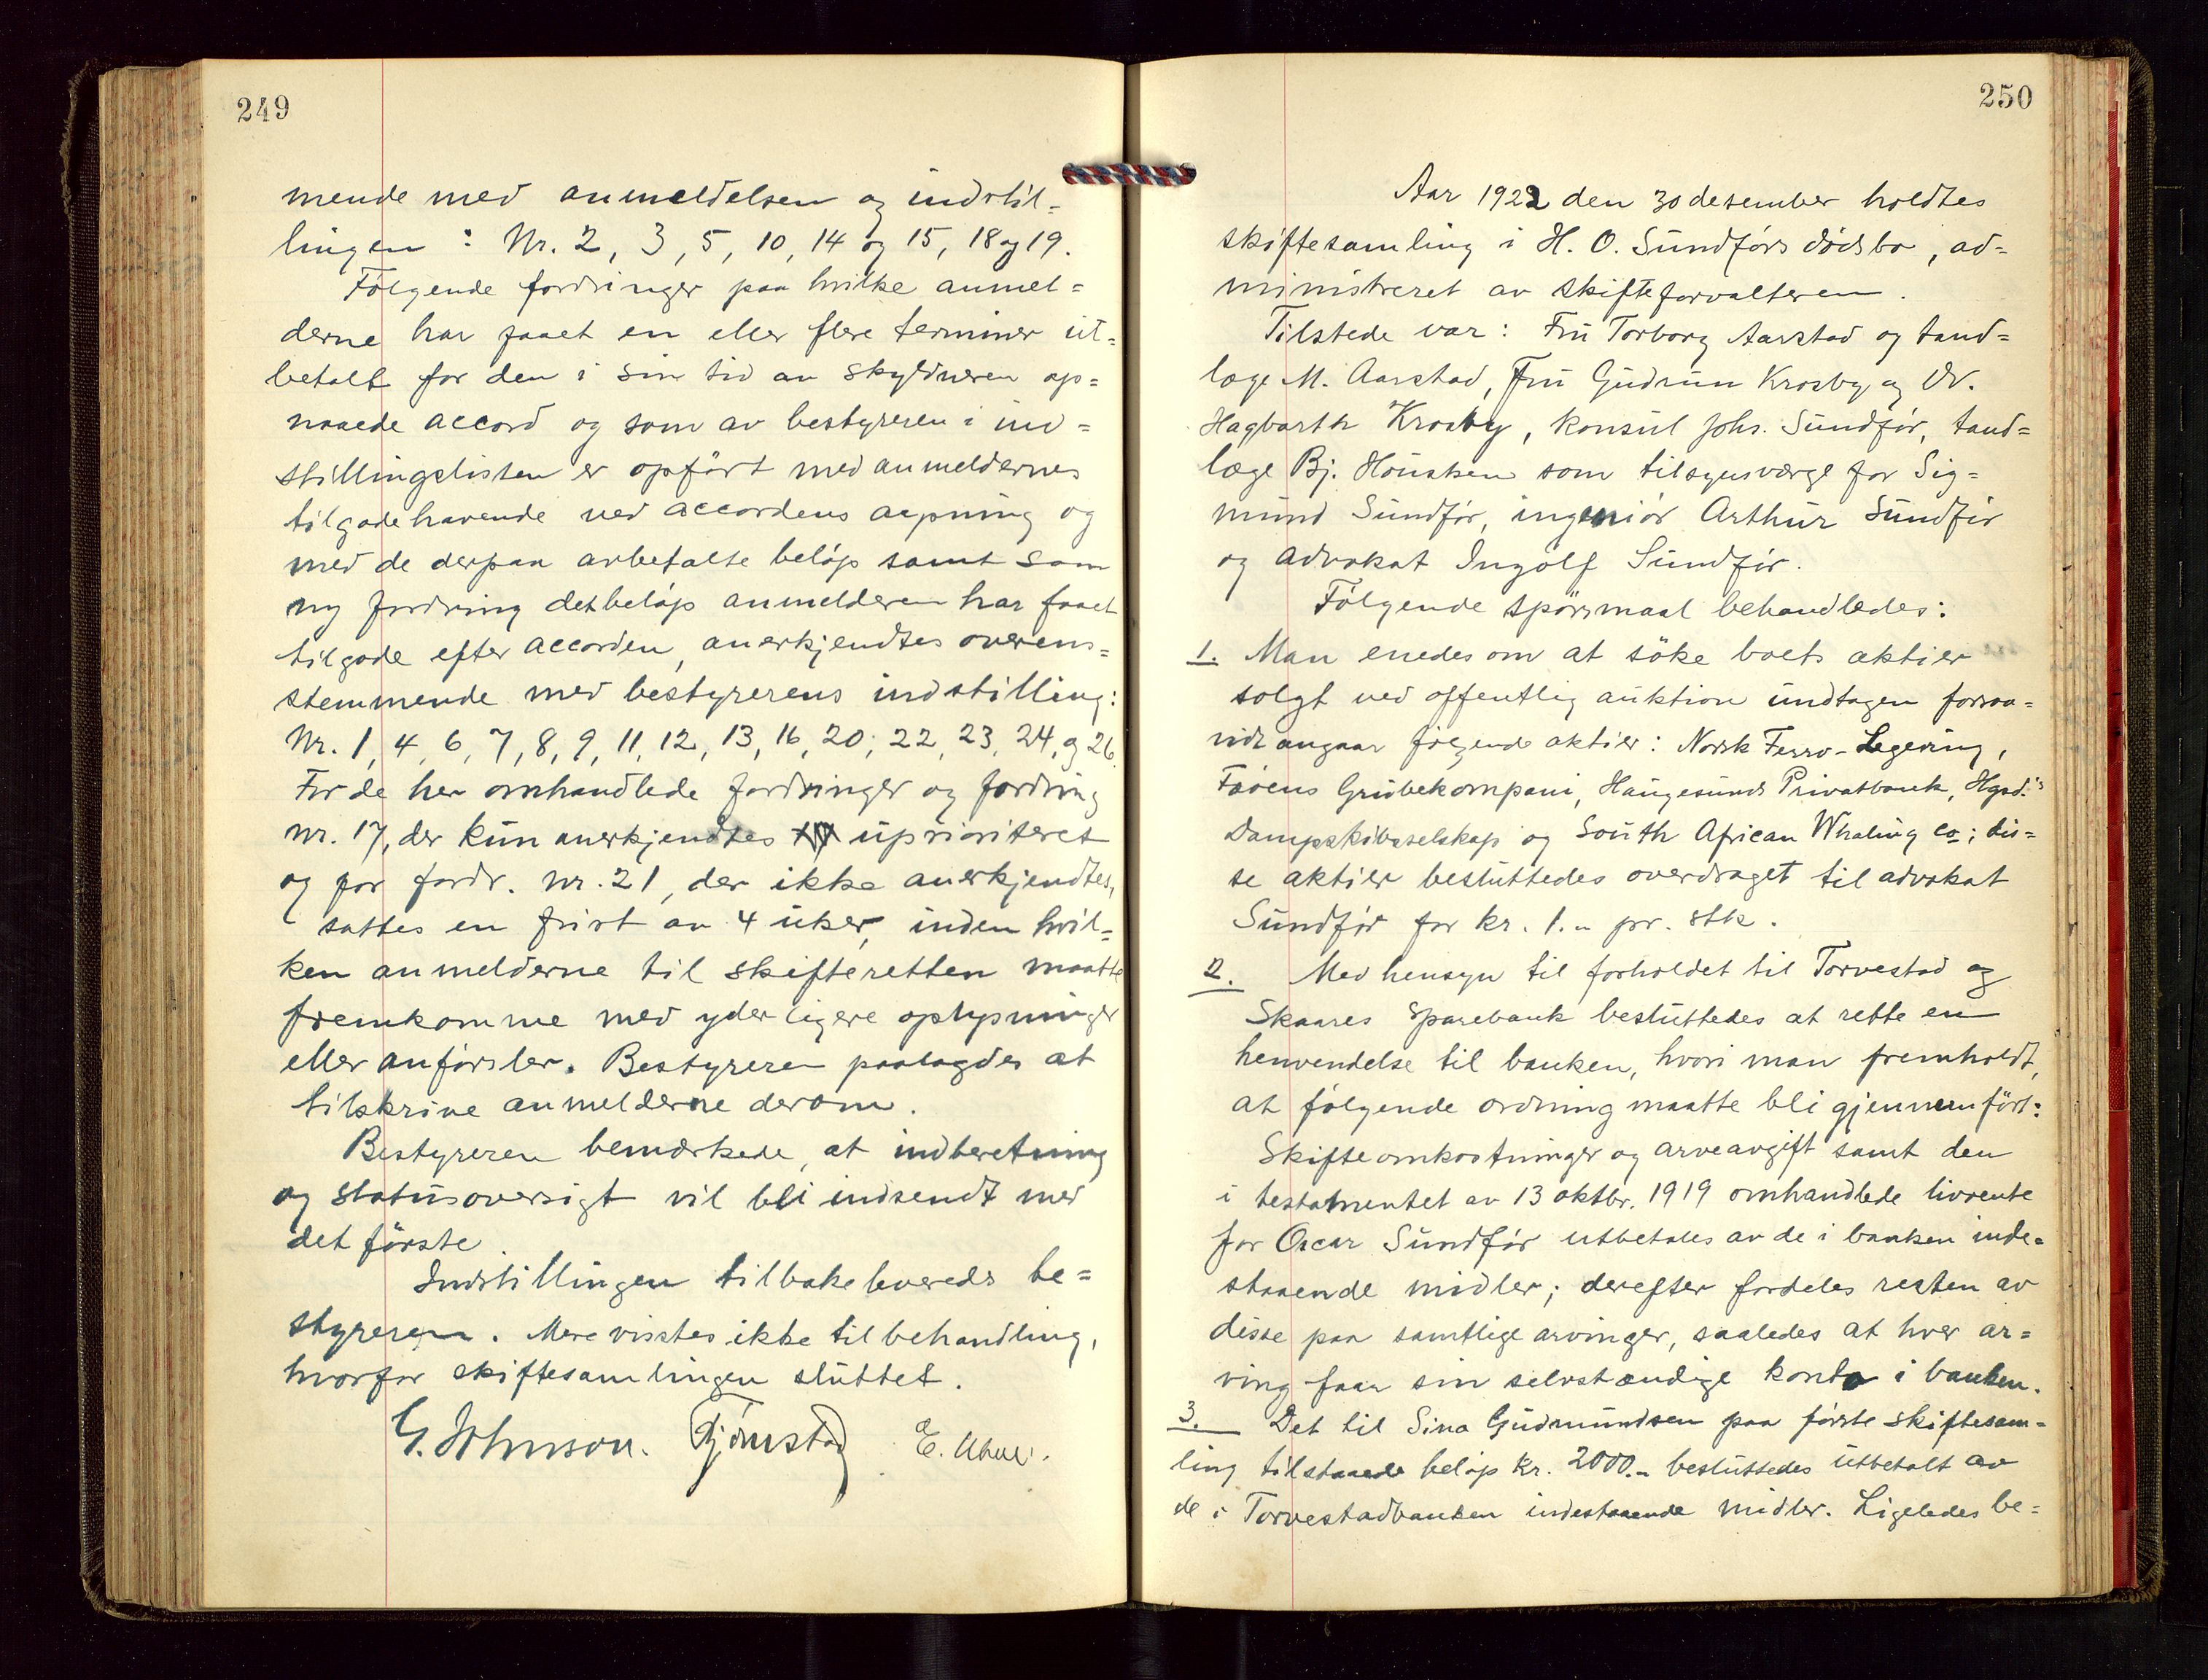 249
mende med anmeldelsen og indstil=
lingen: Nr. 2, 3, 5, 10, 14 og 15, 18 og 19.
Følgende fordringer paa hvilke anmel=
derne har faaet en eller flere terminer ut=
betalt for den i sin tid av skyldneren op=
naaede accord og som av bestyreren i ind=
stillingslisten er opført med anmeldernes
tilgodehavende ved accordens aapning og
med de derpaa avbetalte beløp samt som
ny fordring det beløp anmelderen har faaet
tilgode efter accorden, anerkjendtes overens=
stemmende med bestyrerens indstilling:
Nr. 1, 4, 6, 7, 8, 9, 11, 12, 13, 16, 20, 22, 23, 24, og 26.
For de her omhandlede fordringer og fordring
nr. 17, der kun anerkjendtes uprioriteret
og for fordr. nr. 21, der ikke anerkjendtes,
sattes en frist av 4 uker, inden hvil=
ken anmelderne til skifteretten maatte
fremkomme med yderligere oplysninger
eller anførsler. Bestyreren paalagdes at
tilskrive anmelderne derom.
Bestyreren bemærkede, at indberetning
og statusoversigt vil bli indsendt med
det første
Indstillingen tilbakeleveredes be=
styreren. Mere visstes ikke til behandling,
hvorfor skiftesamlingen sluttet.
G. Johnson. Gjømstad E.
250
Aar 1922 den 30 desember holdtes
skiftesamling i H. O. Sundførs dødsbo, ad=
ministreret av skifteforvalteren.
Tilstede var: Fru Torborg Aarstad og tand=
læge M. Aarstad, Fru Gudrun Krosby og Dr.
Hagbarth Krosby, konsul Johs. Sundfør, tand=
læge Bj. Housken som tilsynsværge for Sig=
mund Sundfør, ingeniør Arthur Sundfør
og advokat Ingolf Sundfør.
Følgende spørsmaal behandledes:
1. Man enedes om at søke boets aktier
solgt ved offentlig auktion undtagen forsaa=
vidt angaar følgende aktier: Norsk Ferro-Legering,
Føøens Grubekompani, Haugesunds Privatbank, Hgsd.'s
Dampskibsselskap og South African Whaling Co; dis=
se aktier besluttedes overdraget til advokat
Sundfør for kr. 1.- pr. stk.
2. Med hensyn til forholdet til Torvestad og
Skaares Sparebank besluttedes at rette en
henvendelse til banken, hvori man fremholdt,
at følgende ordning maatte bli gjennemført:
Skifteomkostninger og arveavgift samt den
i testamentet av 13 oktbr. 1919 omhandlede livrente
for Oscar Sundfør utbetales av de i banken inde=
staaende midler; derefter fordeles resten av
disse paa samtlige arvinger, saaledes at hver ar=
ving faar sin selvstændige konto i banken.
3. Det til Sina Gudmundsen paa første skiftesam=
ling tilstaaede beløp kr. 2000.- besluttedes utbetalt av
de i Torvestadbanken indestaaende midler. Ligeledes be=